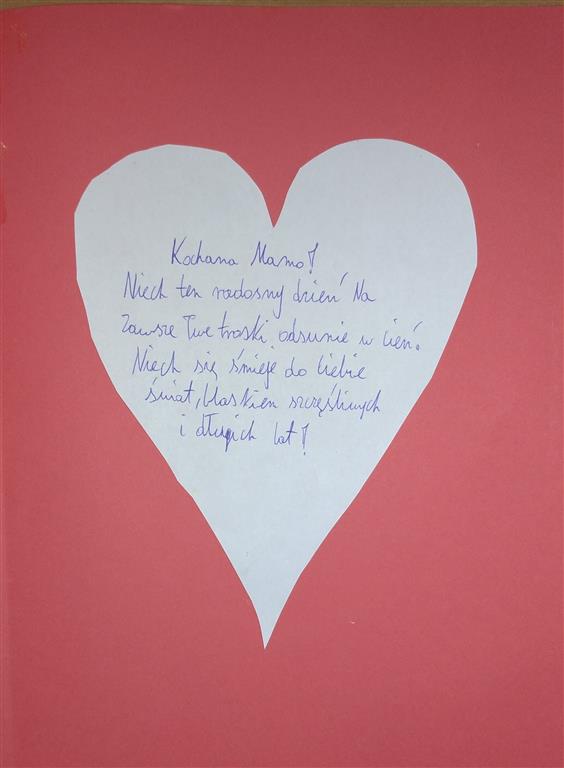 Kochana Mamo!
Niech ten radosny dzień Na
Zawsze Twe troski odsunie w cień.
Niech się śmieje do Ciebie
świat, blaskien szczęśliwych
i długich lat!